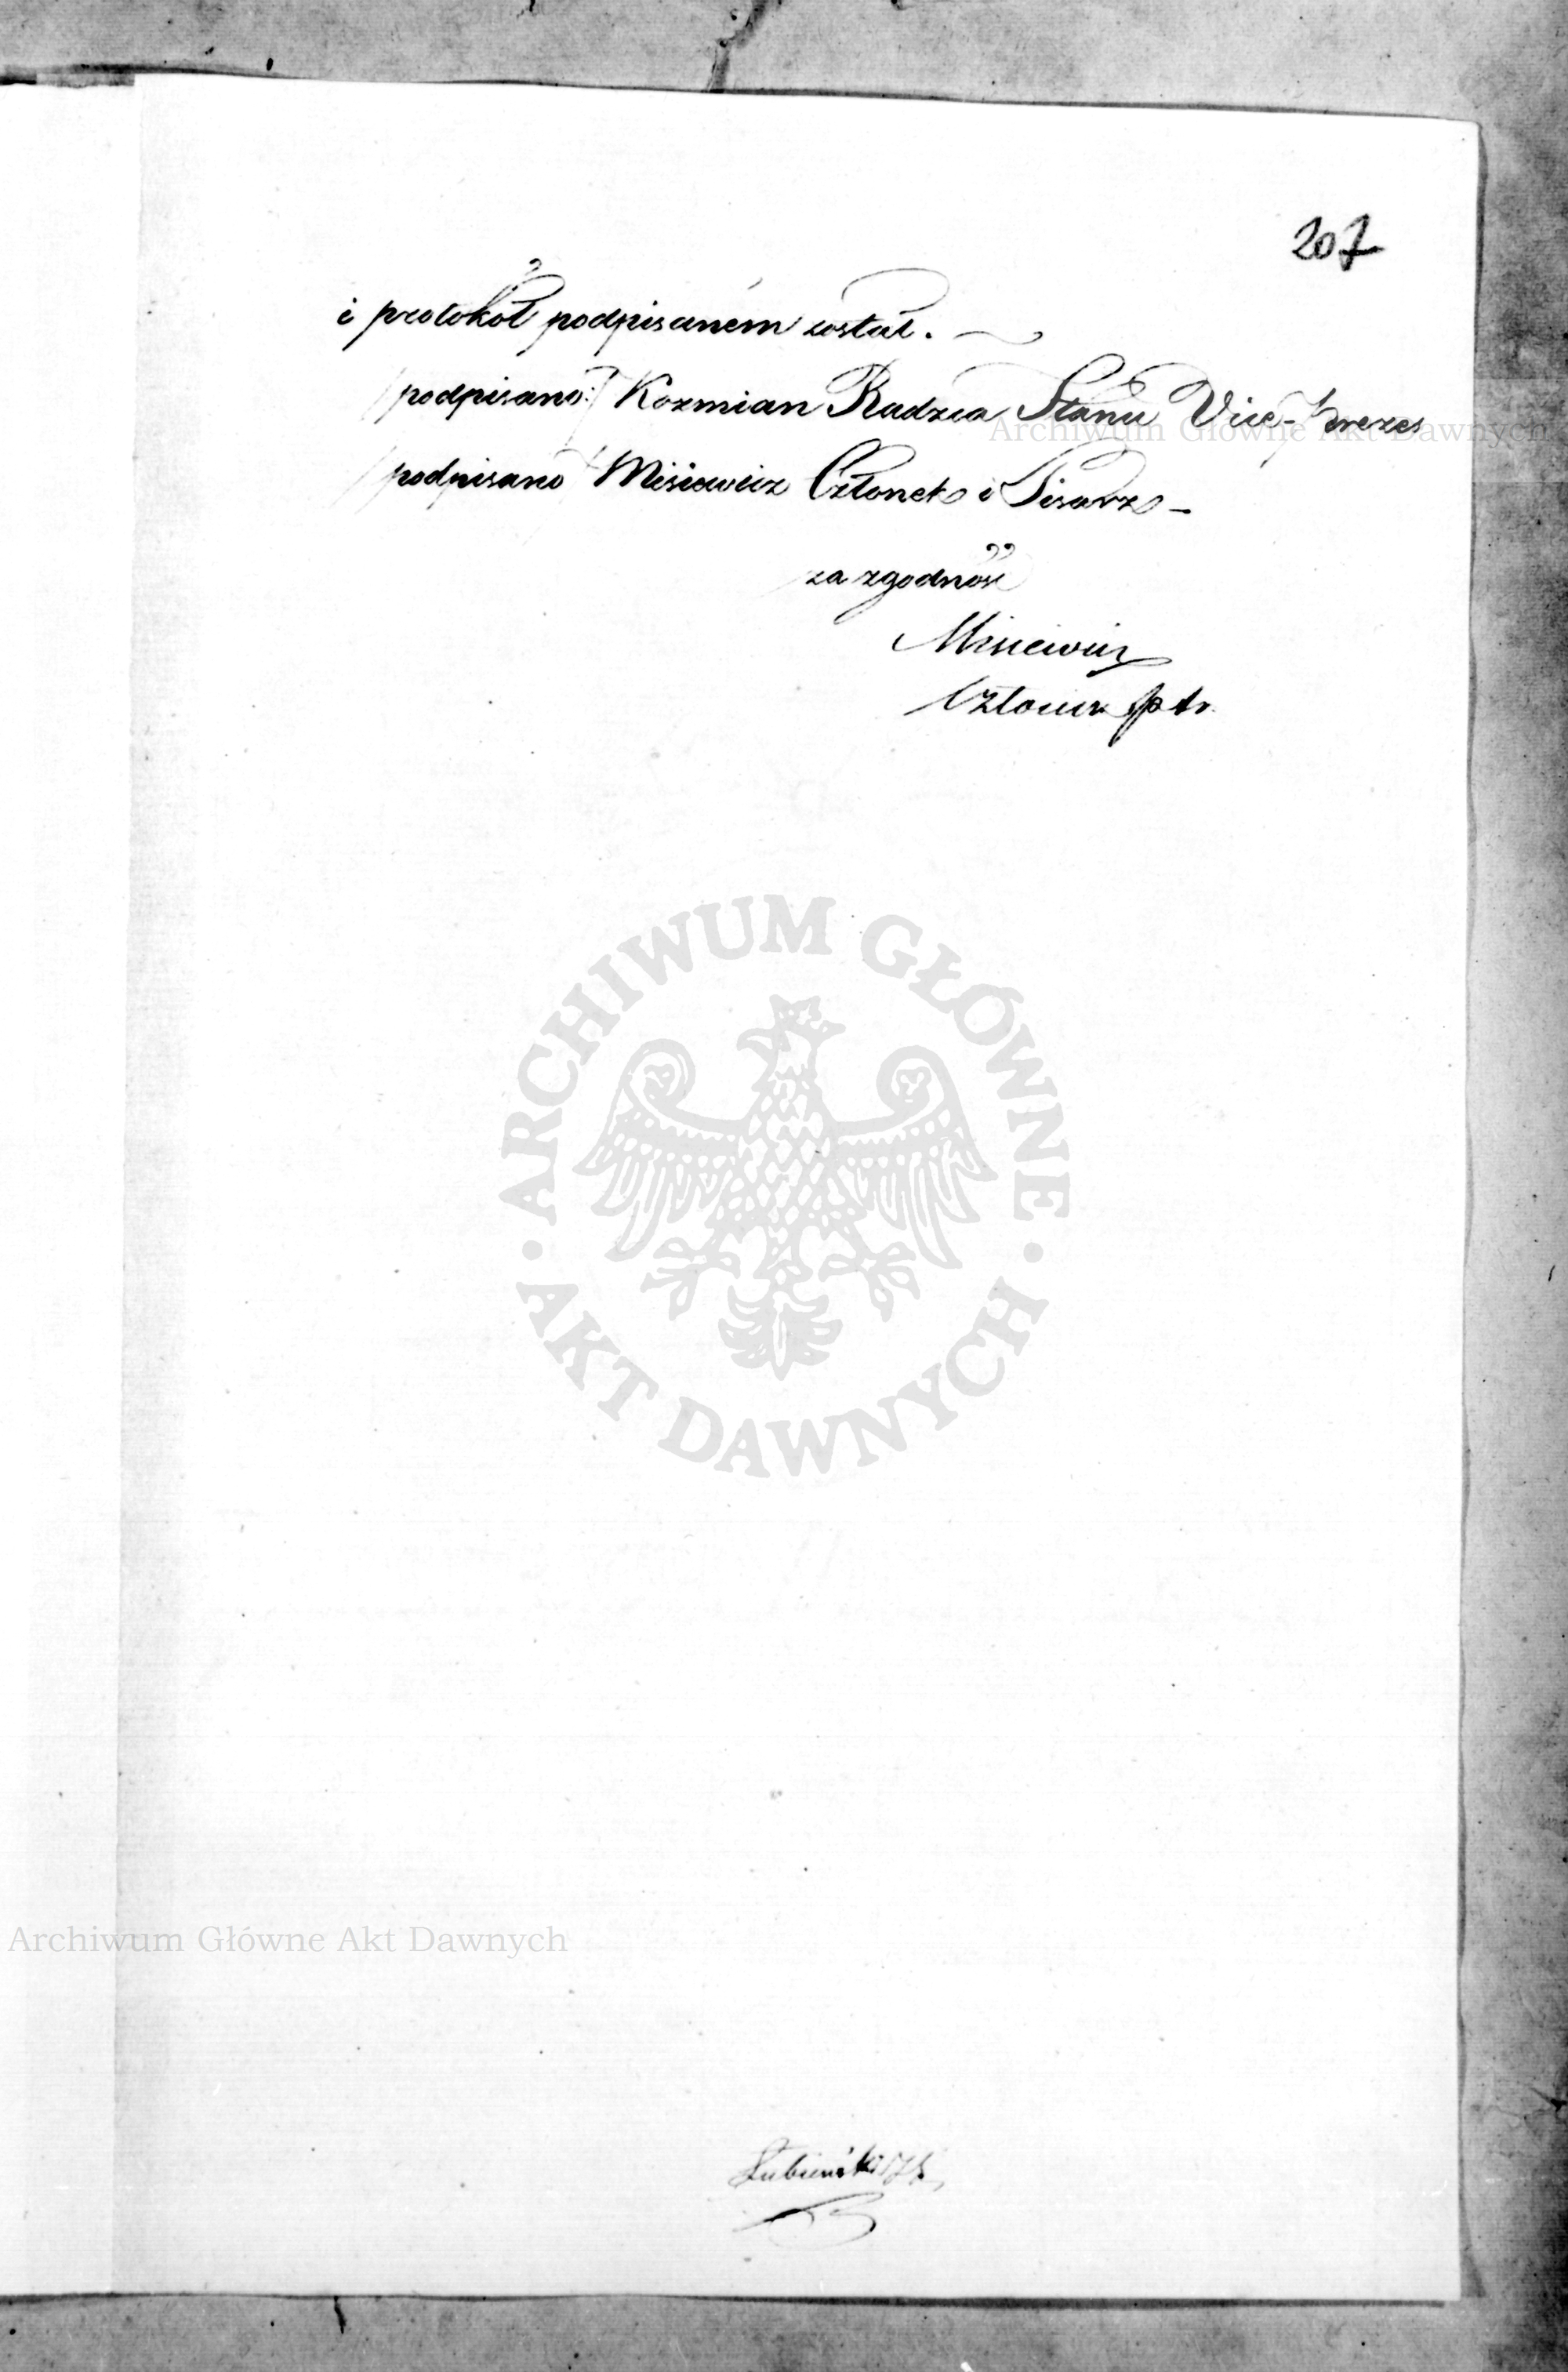 207
i protokół podpisaném został.
/podpisano:/ Kozmian Radzca Stanu Vice-Prezes
/podpisano/ Misiewicz Członek i Pisarz -
za zgodność
Misiewicz
Członek
ARCHIWUM GŁÓWNE
AKT DAWNYCH
Archiwum Główne Akt Dawnych
Archiwum Główne Akt Dawnych
Łubieński